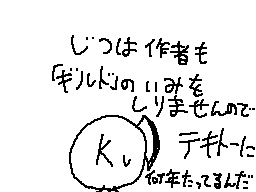 じつは作者も
「ギルド」のいみを
しりませんので
テキトーに
何年たってるんだ
K